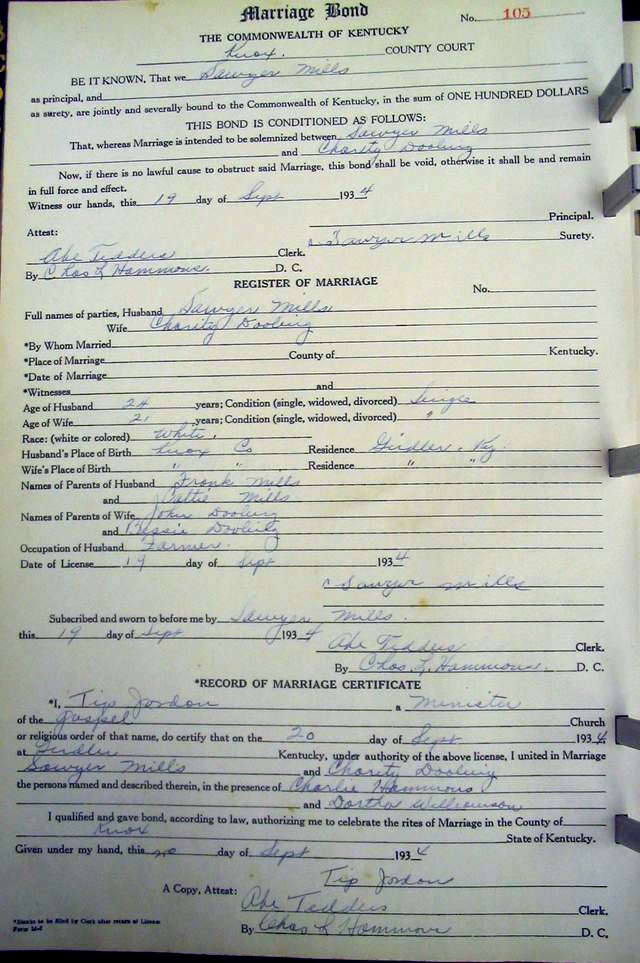 Marriage Bond
No. 105
THE COMMONWEALTH OF KENTUCKY
Knox. COUNTY COURT
BE IT KNOWN, That we Sawyer Mills
as principal, and
as surety, are jointly and severally bound to the Commonwealth of Kentucky, in the sum of ONE HUNDRED DOLLARS
THIS BOND IS CONDITIONED AS FOLLOWS:
That, whereas Marriage is intended to be solemnized between Sawyer Mills
and Charity Dooling
Now, if there is no lawful cause to obstruct said Marriage, this bond shall be void, otherwise it shall be and remain
in full force and effect.
Witness our hands, this 19 day of Sept 1934
Principal.
Attest: Sawyer Mills Surety.
Abe Tedders Clerk.
By Chas L Hammons. D. C.
REGISTER OF MARRIAGE
No.
Full names of parties, Husband Sawyer Mills
Wife Charity Dooling
*By Whom Married
*Place of Marriage County of Kentucky.
*Date of Marriage
*Witnesses and
Age of Husband 24 years; Condition (single, widowed, divorced) Single
Age of Wife 21 years; Condition (single, widowed, divorced) "
Race: (white or colored) White.
Husband's Place of Birth Knox Co Residence Girdler, Ky.
Wife's Place of Birth " " Residence " "
Names of Parents of Husband Frank Mills
and Mills
Names of Parents of Wife John Dooling
and Bessie Dooling
Occupation of Husband Farmer.
Date of License 19 day of Sept 1934
Sawyer Mills
Subscribed and sworn to before me by Sawyer Mills.
this 19 day of Sept 1934
Abe Tedders Clerk.
By Chas. L. Hammons. D. C.
*RECORD OF MARRIAGE CERTIFICATE
*I, Tip Jordon a Minister
of the Gospel Church
or religious order of that name, do certify that on the 20 day of Sept 1934
at Girdler Kentucky, under authority of the above license, I united in Marriage
Sawyer Mills and Charity Dooling
the persons named and described therein, in the presence of Charlie Hammons
and Dortha Williamson
I qualified and gave bond, according to law, authorizing me to celebrate the rites of Marriage in the County of
Knox State of Kentucky.
Given under my hand, this 20 day of Sept 1934
Tip Jordon
A Copy, Attest: Abe Tedders Clerk.
By Chas L Hammons D. C.
*Blanks to be filled by Clerk after return of License